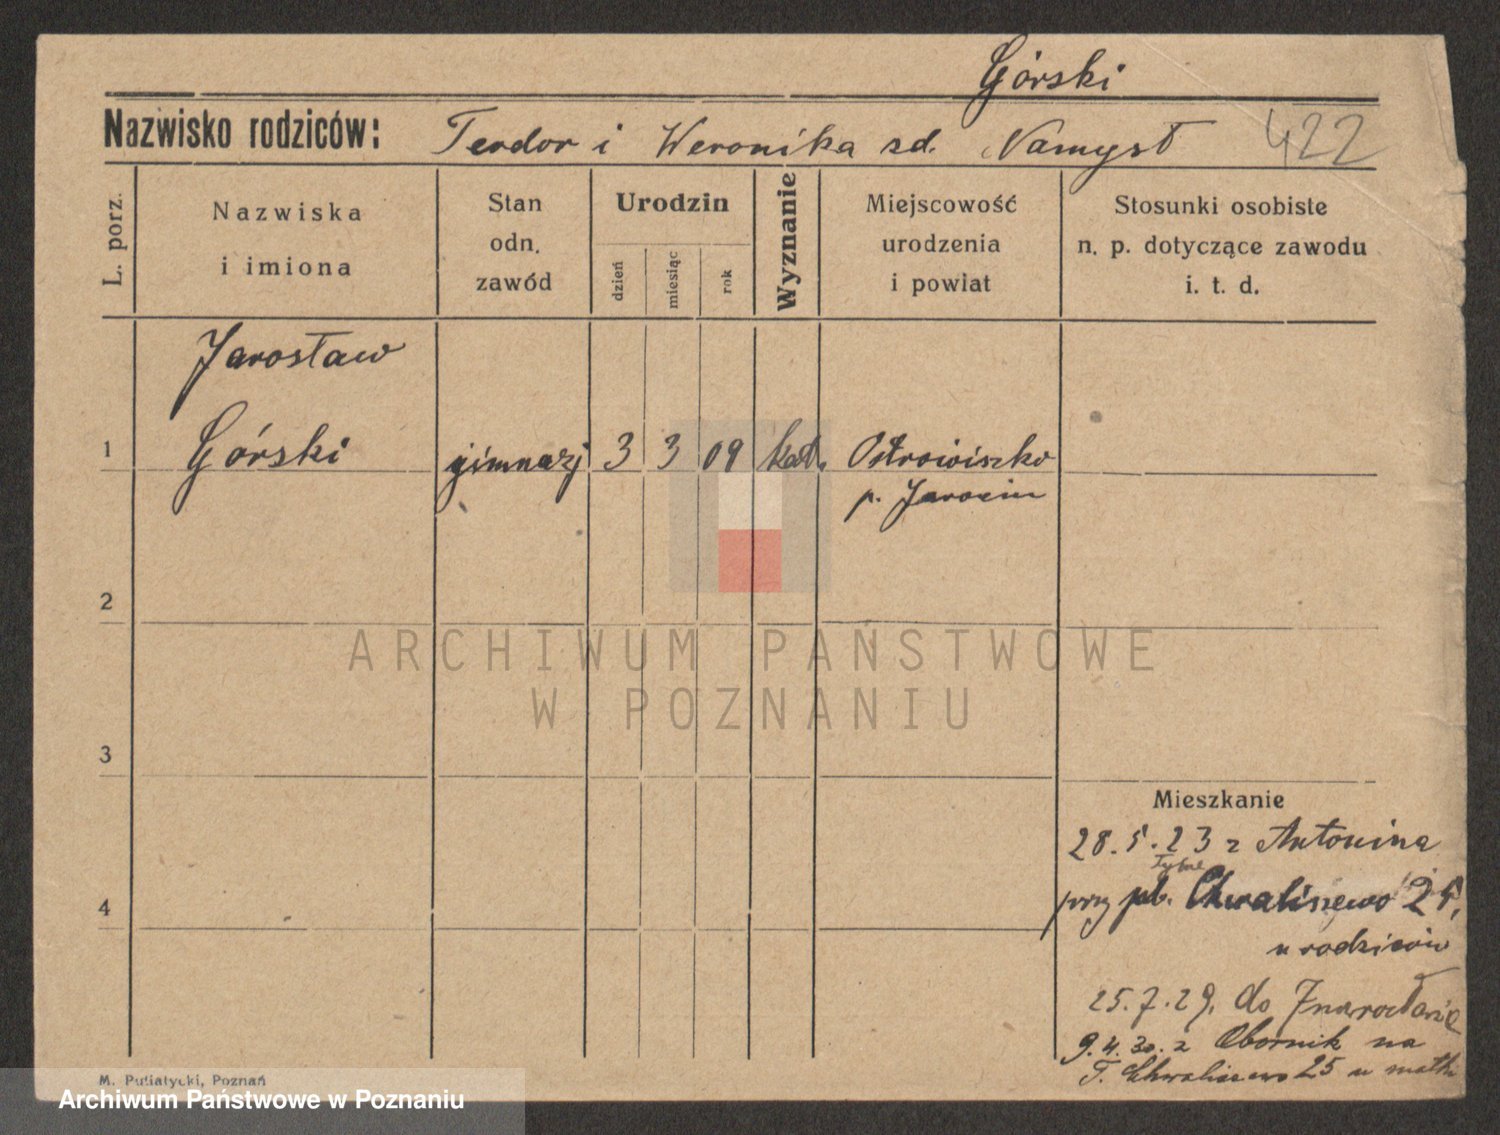 Górski
Nazwisko rodziców: Teodor i Weronika zd. Namysł 422
L. porz.
Nazwiska
i imiona
Stan
odn.
zawód
Urodzin
dzień
miesiąc
rok
Wyznanie
Miejscowość
urodzenia
i powiat
Stosunki osobiste
n. p. dotyczące zawodu
i. t. d.
Jarosław
1 Górski gimnazj 3 3 09 kat. Ostrowiszko
p. Jarocin
2
3
4
ARCHIWUM PAŃSTWOWE
W POZNANIU
Mieszkanie
28.5.23 z Antonina
przy pl. Chwaliszewo 25,
u rodziców
25.7.29. do
9.4.30. z Obornik na
T. Chwaliszewo 25 u matki
M. Putiatycki, Poznań
Archiwum Państwowe w Poznaniu